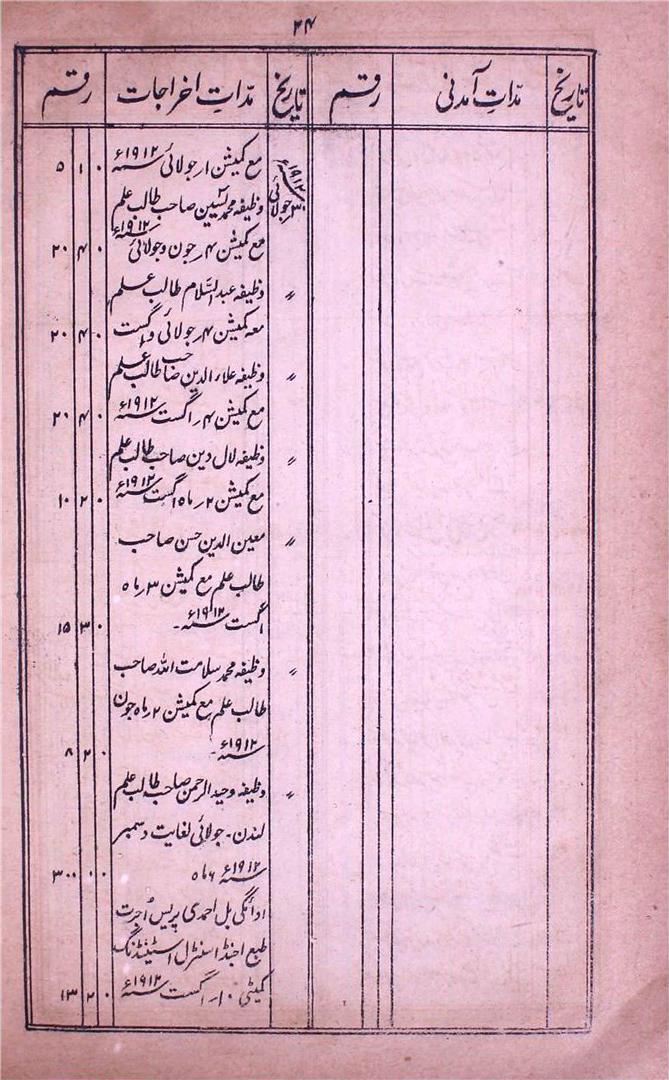 ۲۴
تاریخ مدّاتِ آمدنی رقم تاریخ مدّاتِ اخراجات رقم
مع کمیشن ۱ر جولائی ۱۹۱۲ء ۰ ۱ ۵
۳۰ جولائی ۱۹۱۲ء وظیفہ محمد یٰسین صاحب طالب علم
مع کمیشن ۴ر جون وجولائی ۱۹۱۲ء ۰ ۴ ۲۰
〃 وظیفہ عبدالسّلام طالب علم
معہ کمیشن ۴ر جولائی و اگست ۰ ۴ ۲۰
〃 وظیفہ علاءالدین صاحب طالب علم
مع کمیشن ۴ر اگست ۱۹۱۲ء ۰ ۴ ۲۰
〃 وظیفہ لال دین صاحب طالب علم
مع کمیشن ۲ر ماہ اگست ۱۹۱۲ء ۰ ۲ ۱۰
〃 معین الدین حسن صاحب
طالب علم مع کمیشن ۳ر ماہ
اگست ۱۹۱۲ء۔ ۰ ۳ ۱۵
〃 وظیفہ محمد سلامت اللہ صاحب
طالب علم مع کمیشن ۲ر ماہ جون
۱۹۱۲ء۔ ۰ ۲ ۸
〃 وظیفہ وحید الرحمن صاحب طالب علم
لندن۔ جولائی لغایت دسمبر
۱۹۱۲ء ۶ ماہ ۰ ۰ ۳۰۰
ادائگی بل احمدی پریس اُجرت
طبع اجنڈا سنٹرل اسٹینڈنگ
کمیٹی ۱۰ر اگست ۱۹۱۲ء ۰ ۲ ۱۳